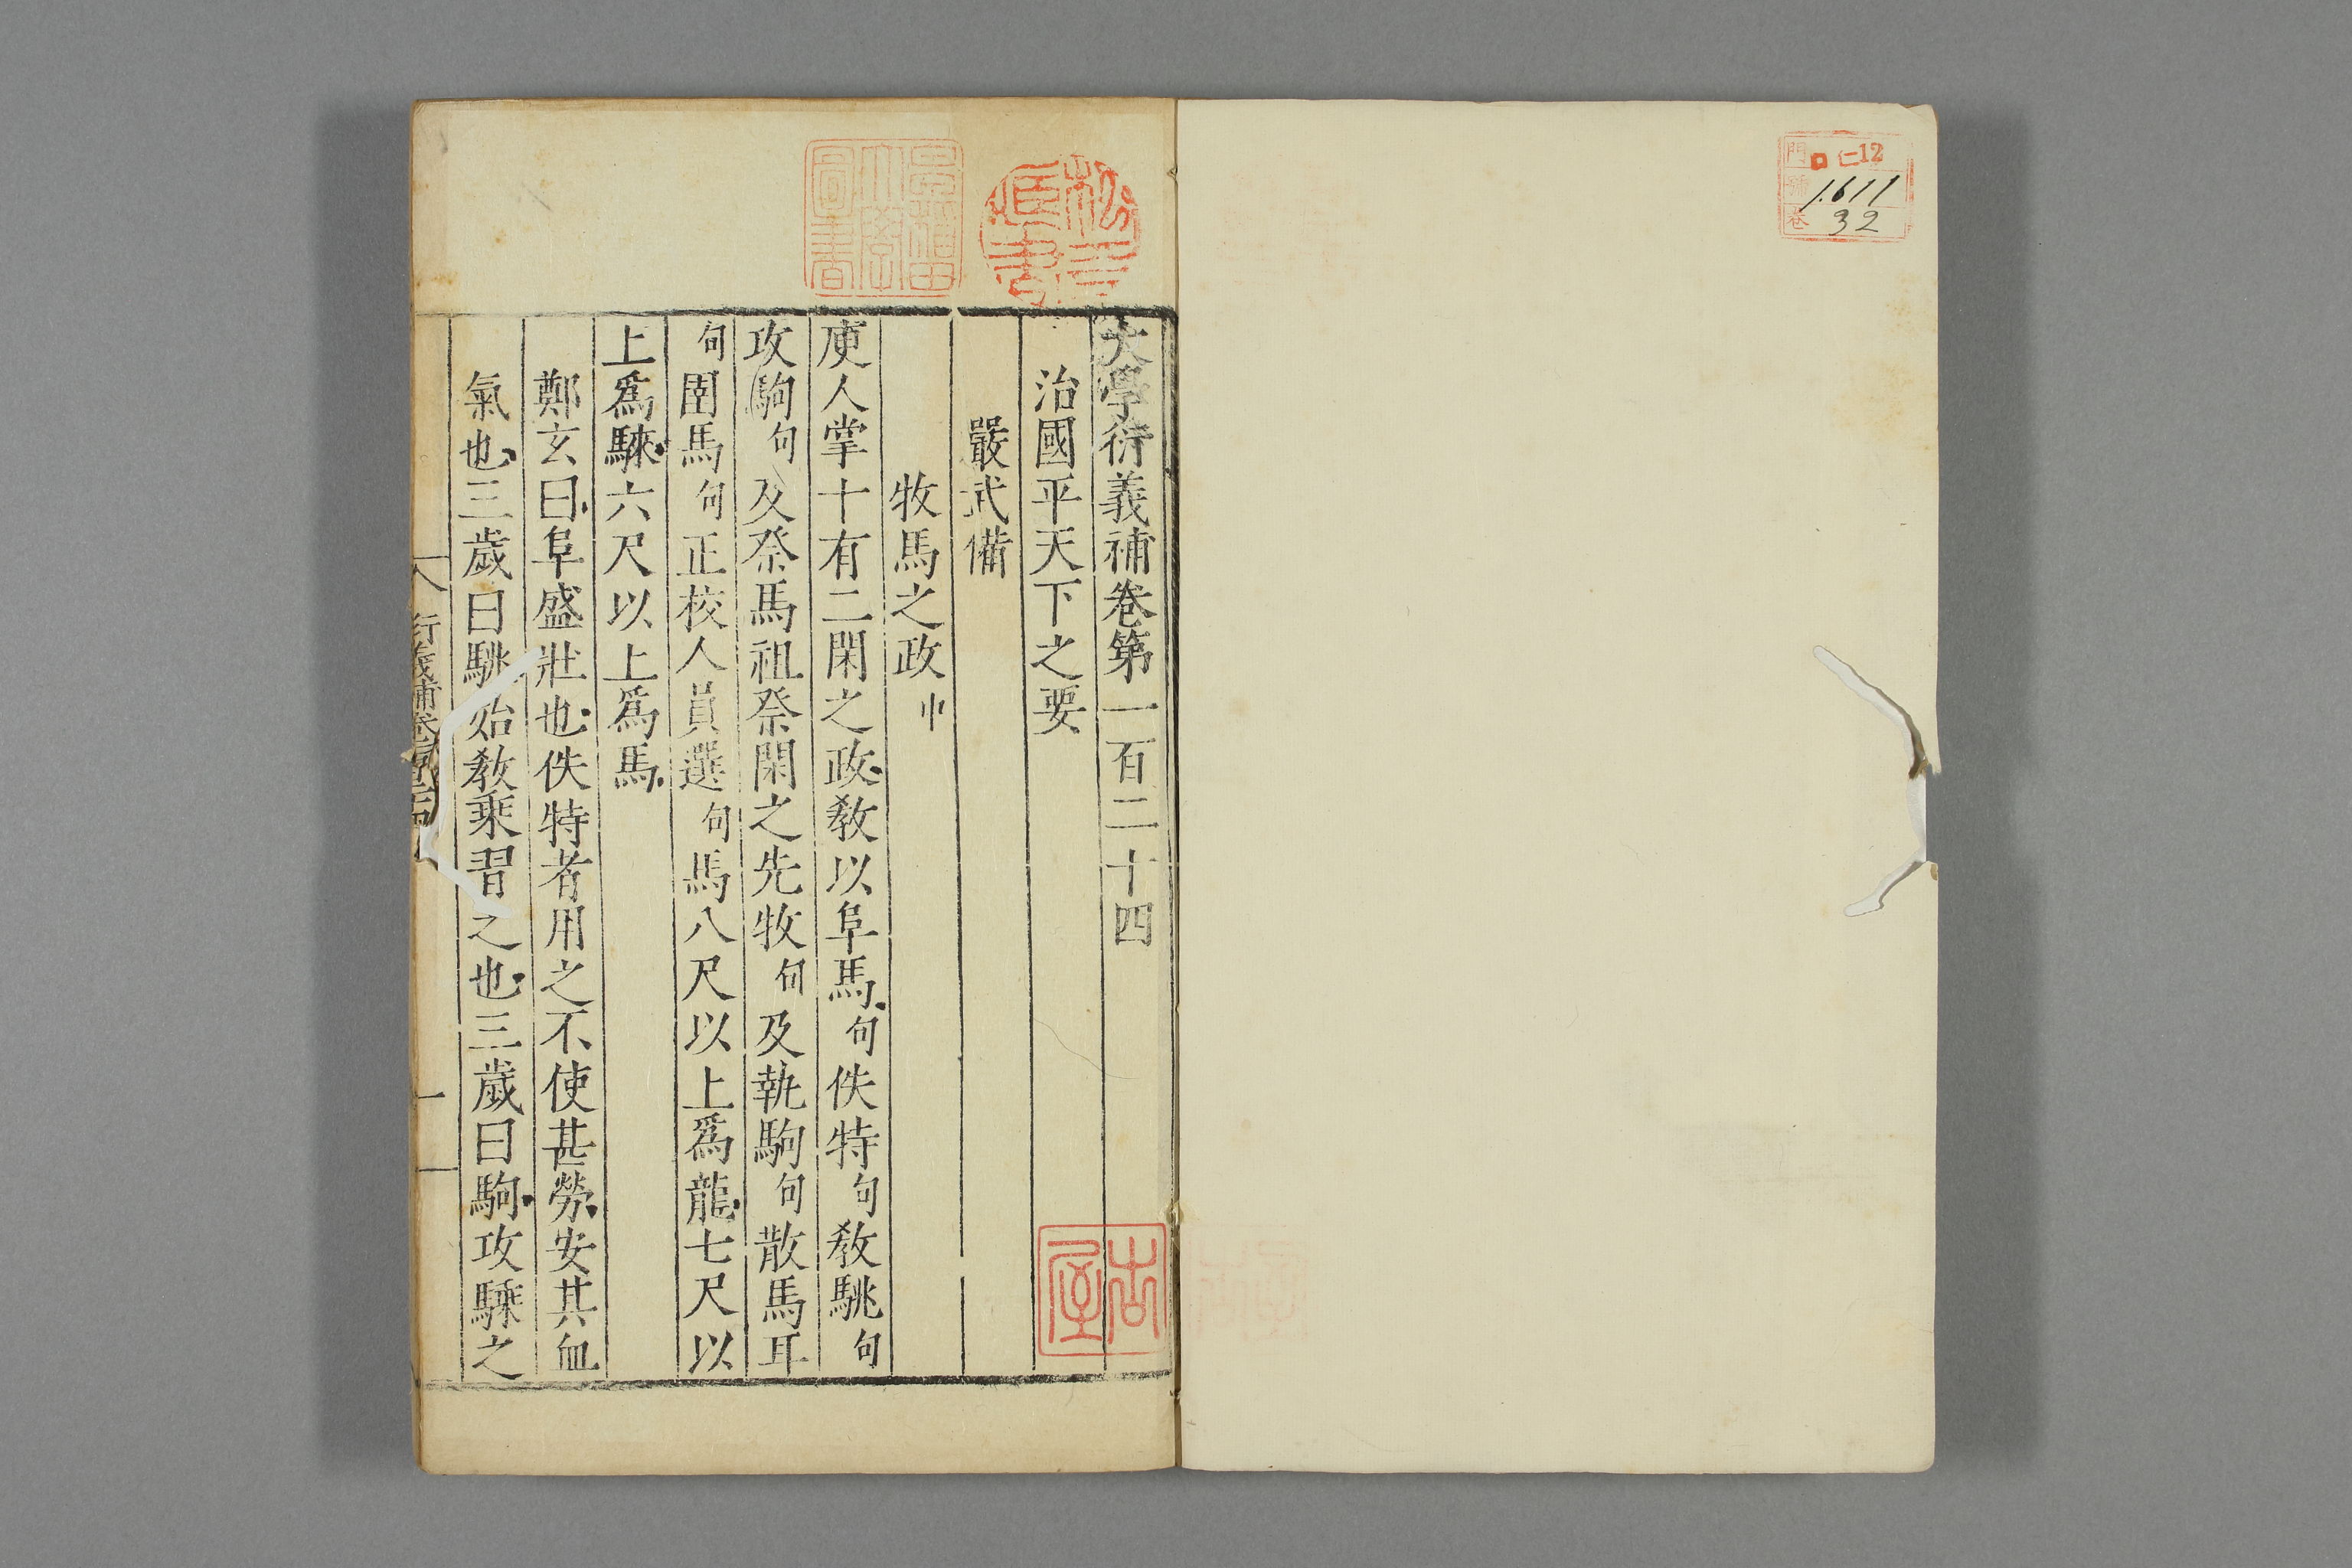 門 ロ 仁12
號 1611
卷 32
大學衍義補卷第一百二十四
治國平天下之要
嚴武備
牧馬之政 中
庾人掌十有二閑之政教以阜馬句佚特句教駣句
攻駒句及祭馬祖祭閑之先牧句及執駒句散馬耳
句圉馬句正校人員選句馬八尺以上爲龍七尺以
上爲騋六尺以上爲馬
鄭玄曰阜盛壯也佚特者用之不使甚勞安其血
氣也三歲曰駣始教乘習之也三歲曰駒攻騬之
衍義補卷
早稻田大學圖書